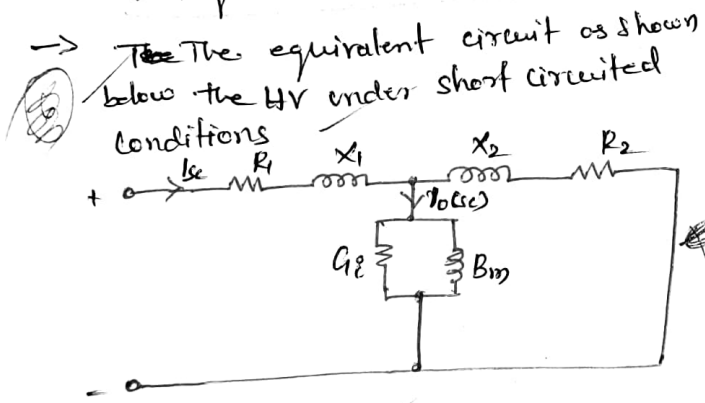 → The equivalent circuit as shown
below the HV under short circuited
conditions
Isc R1 X1 X2 R2
+
I0(sc)
Gi Bm
-